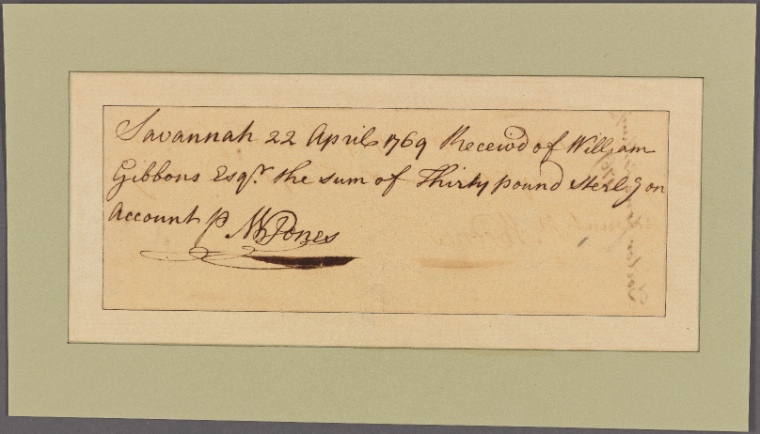 Savannah 22 April 1769 Receiv'd of William
Gibbons Esqr. the sum of Thirty pound Sterlg on
Account P NWJones